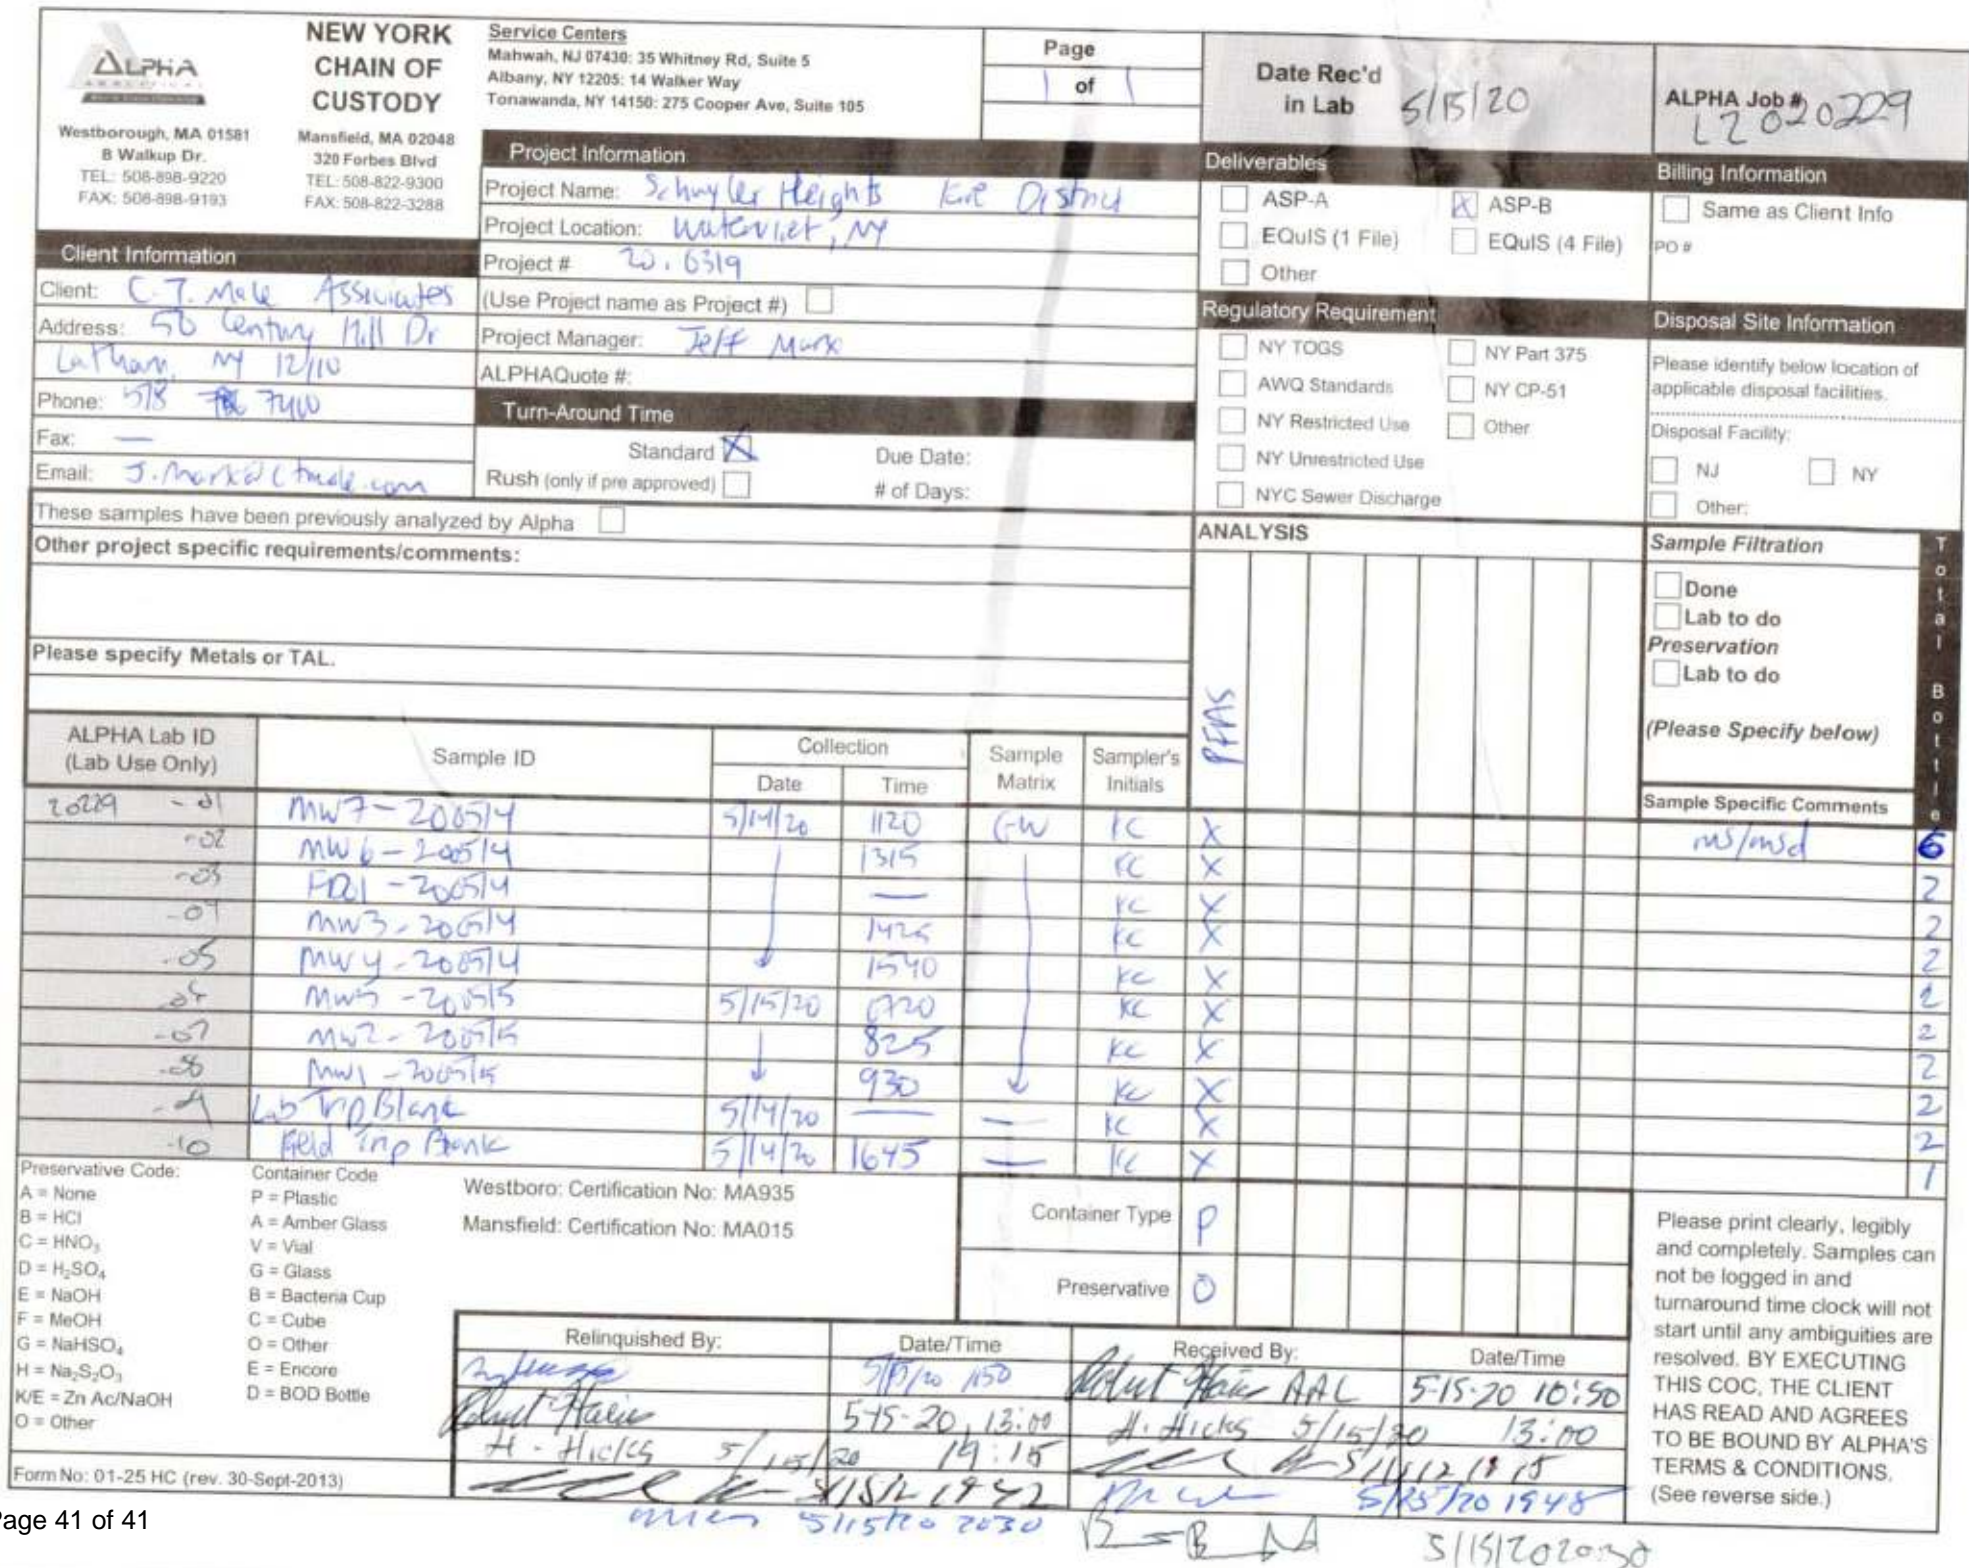 ALPHA
ANALYTICAL
Westborough, MA 01581
8 Walkup Dr.
TEL: 508-898-9220
FAX: 508-898-9193
NEW YORK
CHAIN OF
CUSTODY
Mansfield, MA 02048
320 Forbes Blvd
TEL: 508-822-9300
FAX: 508-822-3288
Service Centers
Mahwah, NJ 07430: 35 Whitney Rd, Suite 5
Albany, NY 12205: 14 Walker Way
Tonawanda, NY 14150: 275 Cooper Ave, Suite 105
Page
1 of 1
Date Rec'd
in Lab 5/15/20
ALPHA Job #
L2020229
Project Information
Project Name: Schuyler Heights Fire District
Project Location: Watervliet, NY
Project # 20.6319
(Use Project name as Project #)
Project Manager: Jeff Marx
ALPHAQuote #:
Turn-Around Time
Standard X Due Date:
Rush (only if pre approved) # of Days:
Client Information
Client: C.T. Male Associates
Address: 50 Century Hill Dr
Latham, NY 12110
Phone: 518 7400
Fax: —
Email: J.marx@ctmale.com
Deliverables
ASP-A X ASP-B
EQuIS (1 File) EQuIS (4 File)
Other
Regulatory Requirement
NY TOGS NY Part 375
AWQ Standards NY CP-51
NY Restricted Use Other
NY Unrestricted Use
NYC Sewer Discharge
Billing Information
Same as Client Info
PO #
Disposal Site Information
Please identify below location of
applicable disposal facilities.
Disposal Facility:
NJ NY
Other:
These samples have been previously analyzed by Alpha
Other project specific requirements/comments:
Please specify Metals or TAL.
ANALYSIS
PFAS
Sample Filtration
Done
Lab to do
Preservation
Lab to do
(Please Specify below)
Total Bottle
ALPHA Lab ID
(Lab Use Only)
Sample ID
Collection
Date Time
Sample
Matrix
Sampler's
Initials
Sample Specific Comments
20229 -01 MW7-200514 5/14/20 1120 GW KC X ms/msd 6
-02 MW6-200514 1315 KC X 2
-03 FD01-200514 — KC X 2
-04 MW3-200514 1425 KC X 2
-05 MW4-200514 1540 KC X 2
MW5-200515 5/15/20 0720 KC X 2
-07 MW2-200515 825 KC X 2
-08 MW1-200515 930 KC X 2
Lab Trip Blank 5/14/20 — — KC X 2
-10 Field Trip Blank 5/14/20 1645 — KC X 1
Preservative Code:
A = None
B = HCl
C = HNO₃
D = H₂SO₄
E = NaOH
F = MeOH
G = NaHSO₄
H = Na₂S₂O₃
K/E = Zn Ac/NaOH
O = Other
Container Code
P = Plastic
A = Amber Glass
V = Vial
G = Glass
B = Bacteria Cup
C = Cube
O = Other
E = Encore
D = BOD Bottle
Westboro: Certification No: MA935
Mansfield: Certification No: MA015
Container Type P
Preservative O
Relinquished By: Date/Time Received By: Date/Time
5/15/20 AAL 5-15-20 10:50
5-15-20, 13:00 H. Hicks 5/15/20 13:00
H. Hicks 5/15/20 19:15
5/15/20 1948
5/15/20 2030 5/15/20 20:30
Please print clearly, legibly
and completely. Samples can
not be logged in and
turnaround time clock will not
start until any ambiguities are
resolved. BY EXECUTING
THIS COC, THE CLIENT
HAS READ AND AGREES
TO BE BOUND BY ALPHA'S
TERMS & CONDITIONS.
(See reverse side.)
Form No: 01-25 HC (rev. 30-Sept-2013)
Page 41 of 41